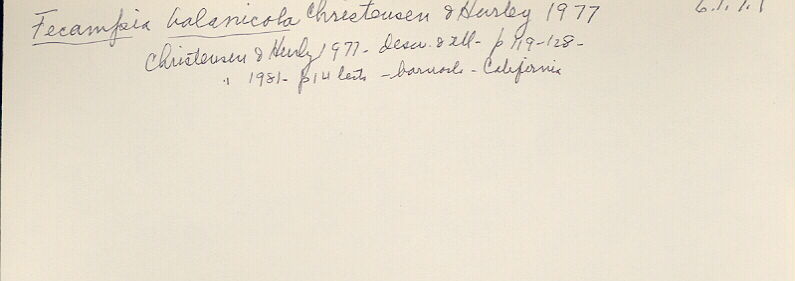 Fecampia balanicola Christensen & Hurley 1977
Christensen & Hurley 1977 - descr. & ill - p 119-128 -
" 1981 - p 14 - barnacle - California